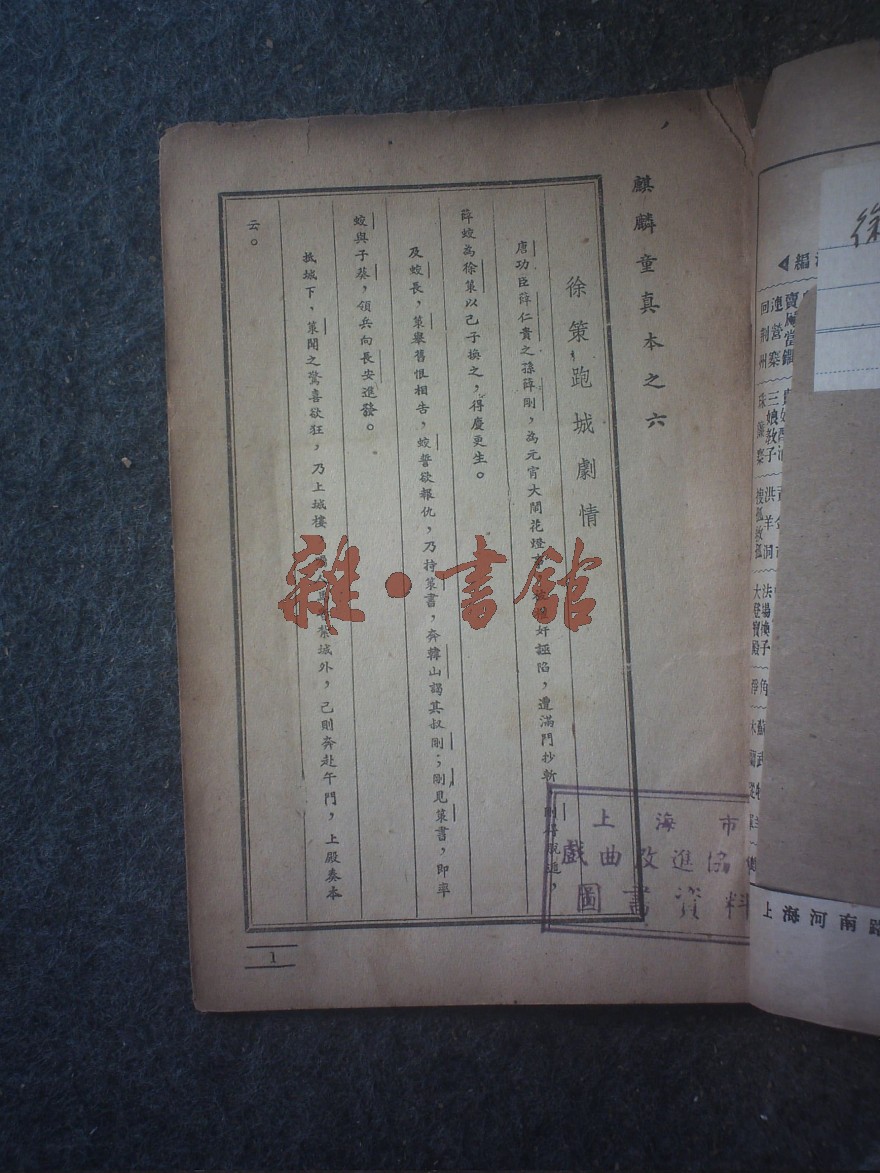 麒麟童真本之六
徐策跑城劇情
唐功臣薛仁貴之孫薛剛，為元宵大鬧花燈 奸誣陷，遭滿門抄斬，剛
薛蛟為徐策以己子換之，得慶更生。
及蛟長，策舉舊恨相告，蛟誓欲報仇，乃持策書，奔韓山謁其叔剛；剛見策書，即率
蛟與子葵，領兵向長安進發。
抵城下，策聞之驚喜欲狂，乃上城樓 紮城外，己則奔赴午門，上殿奏本
云。
1
雜·書館
上海市
戲曲改進協
圖書資料
徐
編
回荊州
連營寨
三娘教子
洪羊洞
搜孤救孤
法場換子
大登寶殿
上海河南路